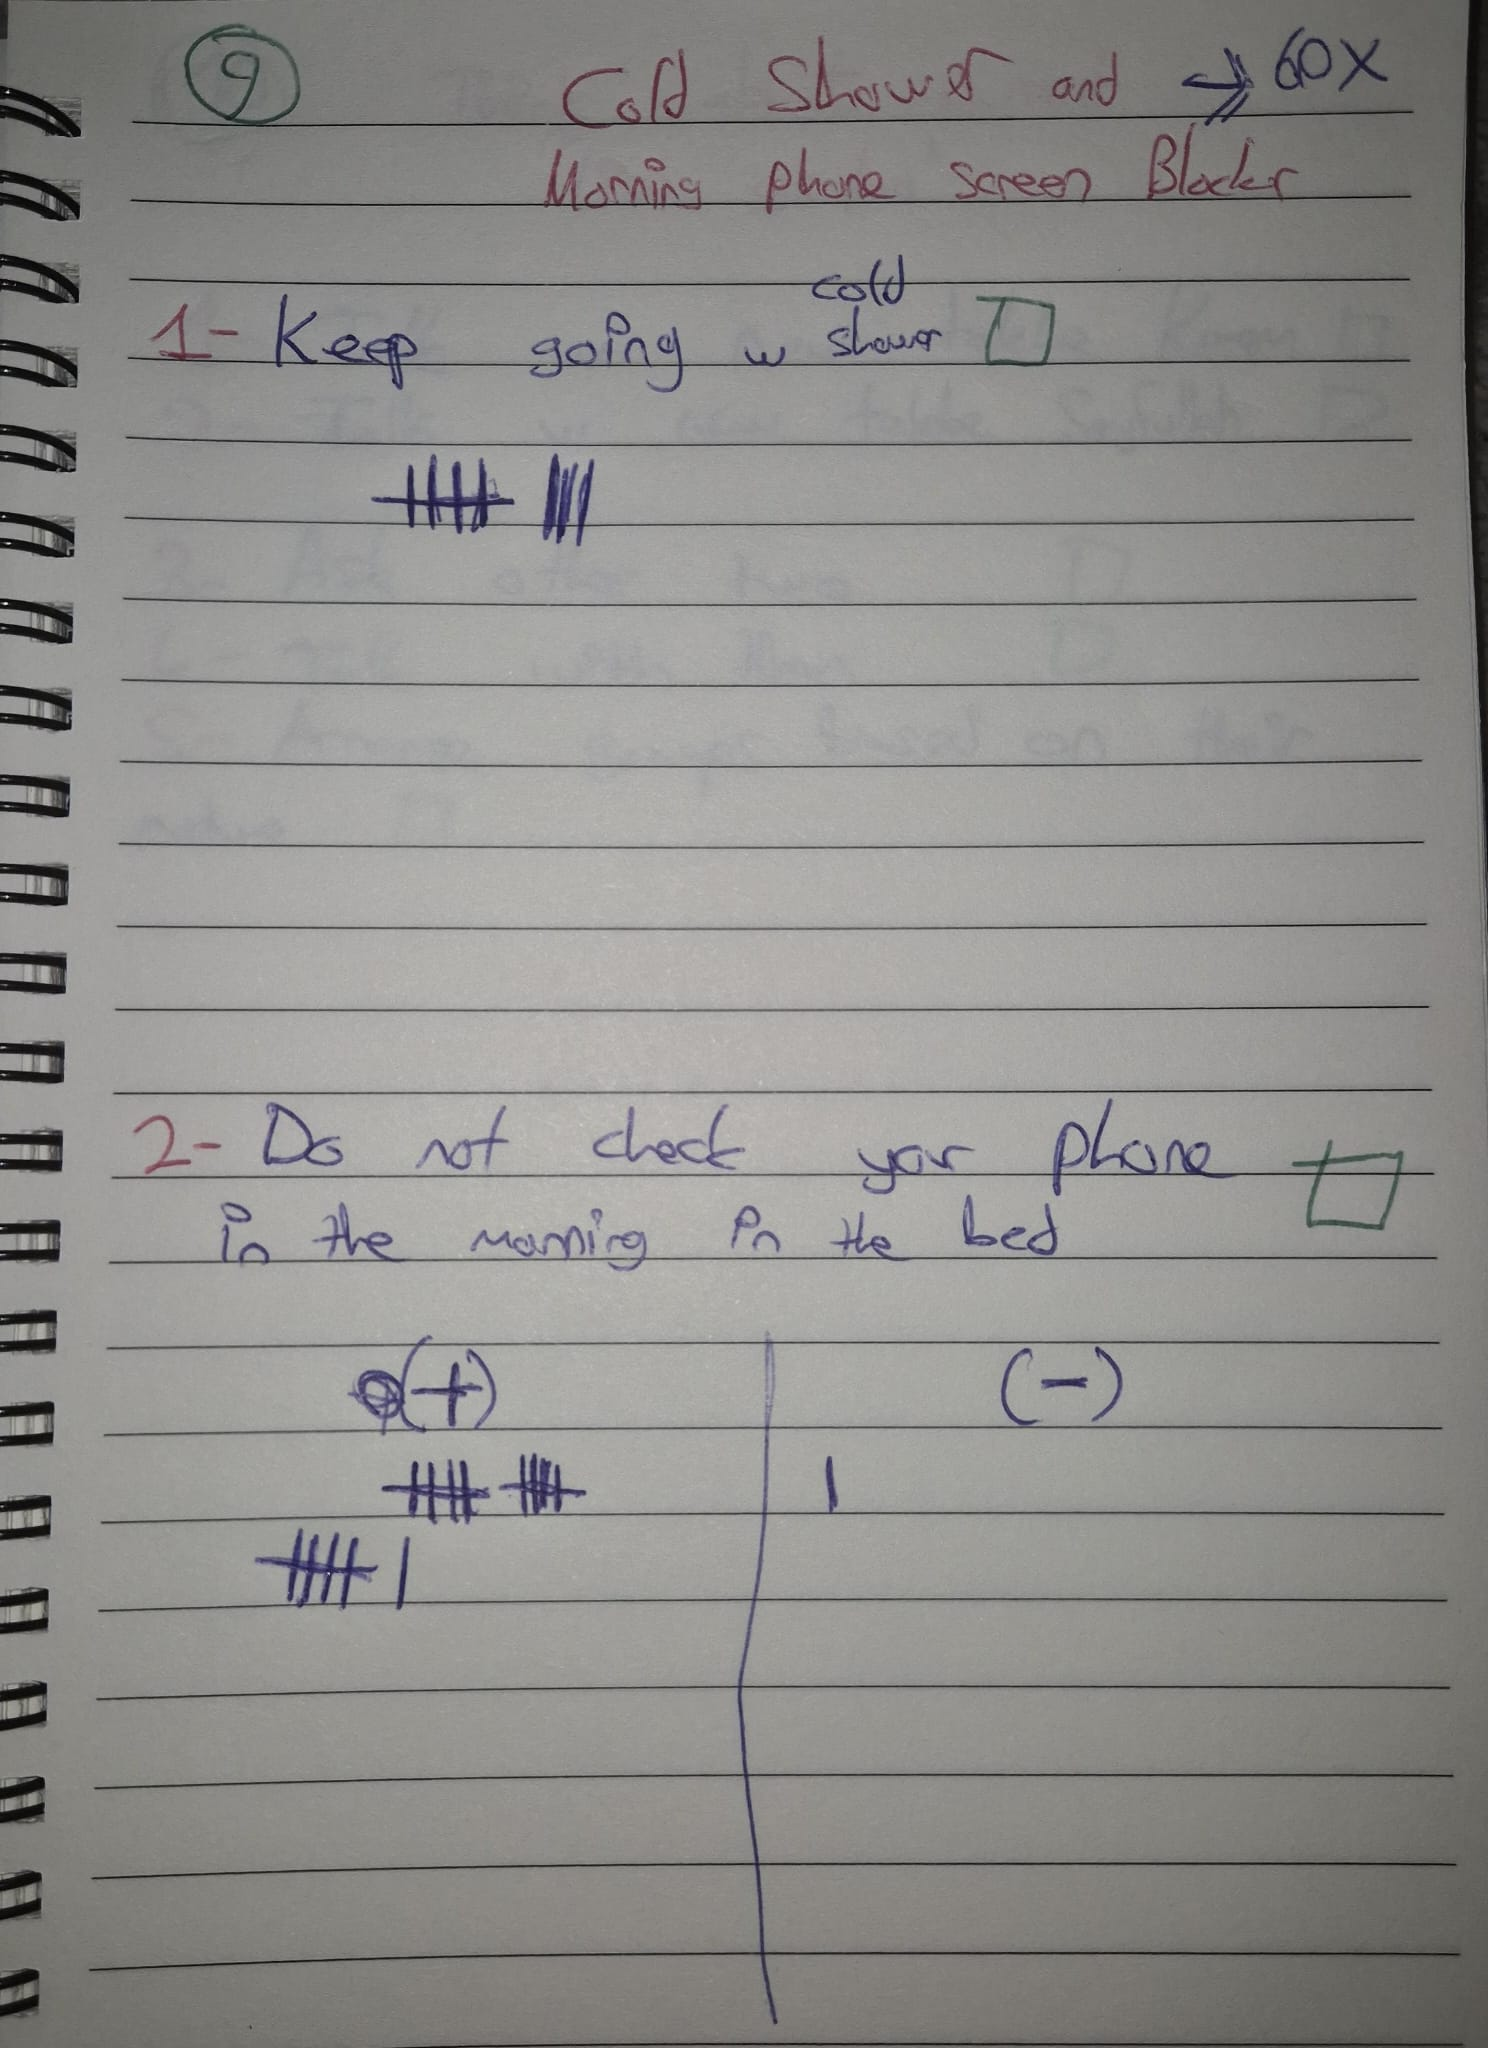 9
Cold Shower and → 60X
Morning phone screen Blocker
1- Keep going w cold shower
2- Do not check your phone
in the morning in the bed
(+) (-)